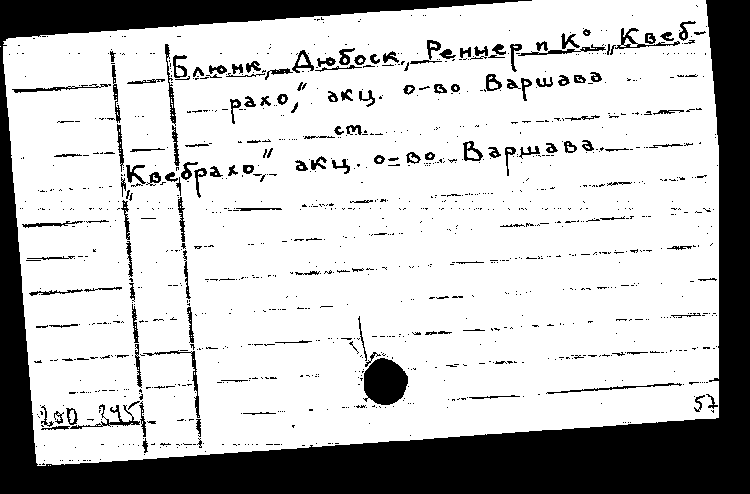 Блюнк, Дюбоск, Реннер и К° „Квеб-
рахо,” акц. о-во Варшава
ст.
„Квебрахо,” акц. о-во Варшава
200-345
57